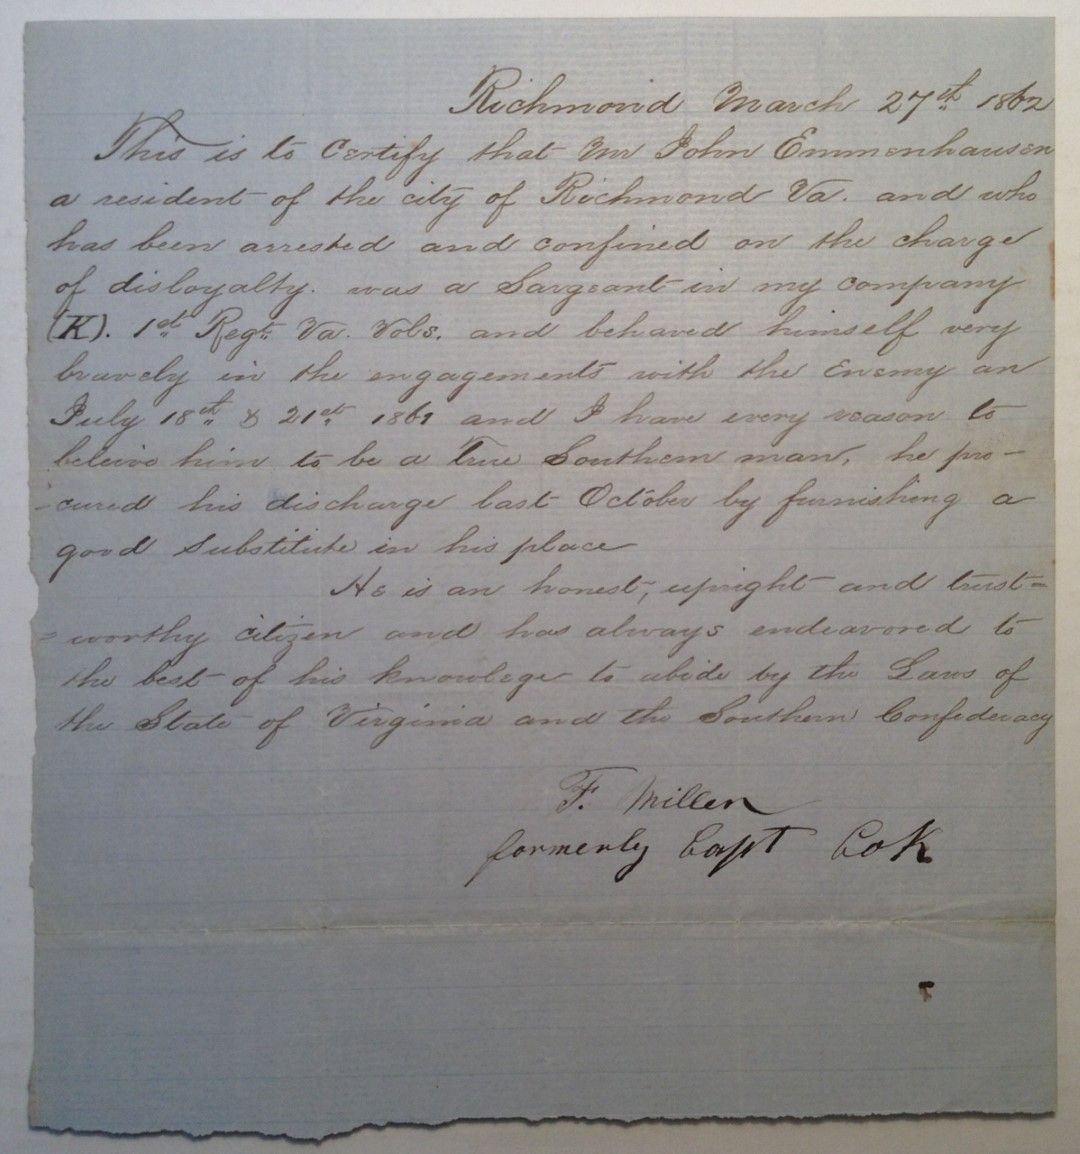 Richmond March 27th 1862
This is to Certify that Mr John Emmenhausen
a resident of the city of Richmond Va. and who
has been arrested and confined on the charge
of disloyalty. was a Sargeant in my company
(K). 1st Regt. Va. Vols. and behaved himself very
bravely in the engagements with the Enemy on
July 18th & 21st 1861 and I have every reason to
beleive him to be a true Southern man, he pro-
-cured his discharge last October by furnishing a
good substitute in his place
He is an honest, upright and trust=
=worthy citizen and has always endeavored to
the best of his knowlege to abide by the Laws of
the State of Virginia and the Southern Confederacy
F. Miller
formerly Capt Co K